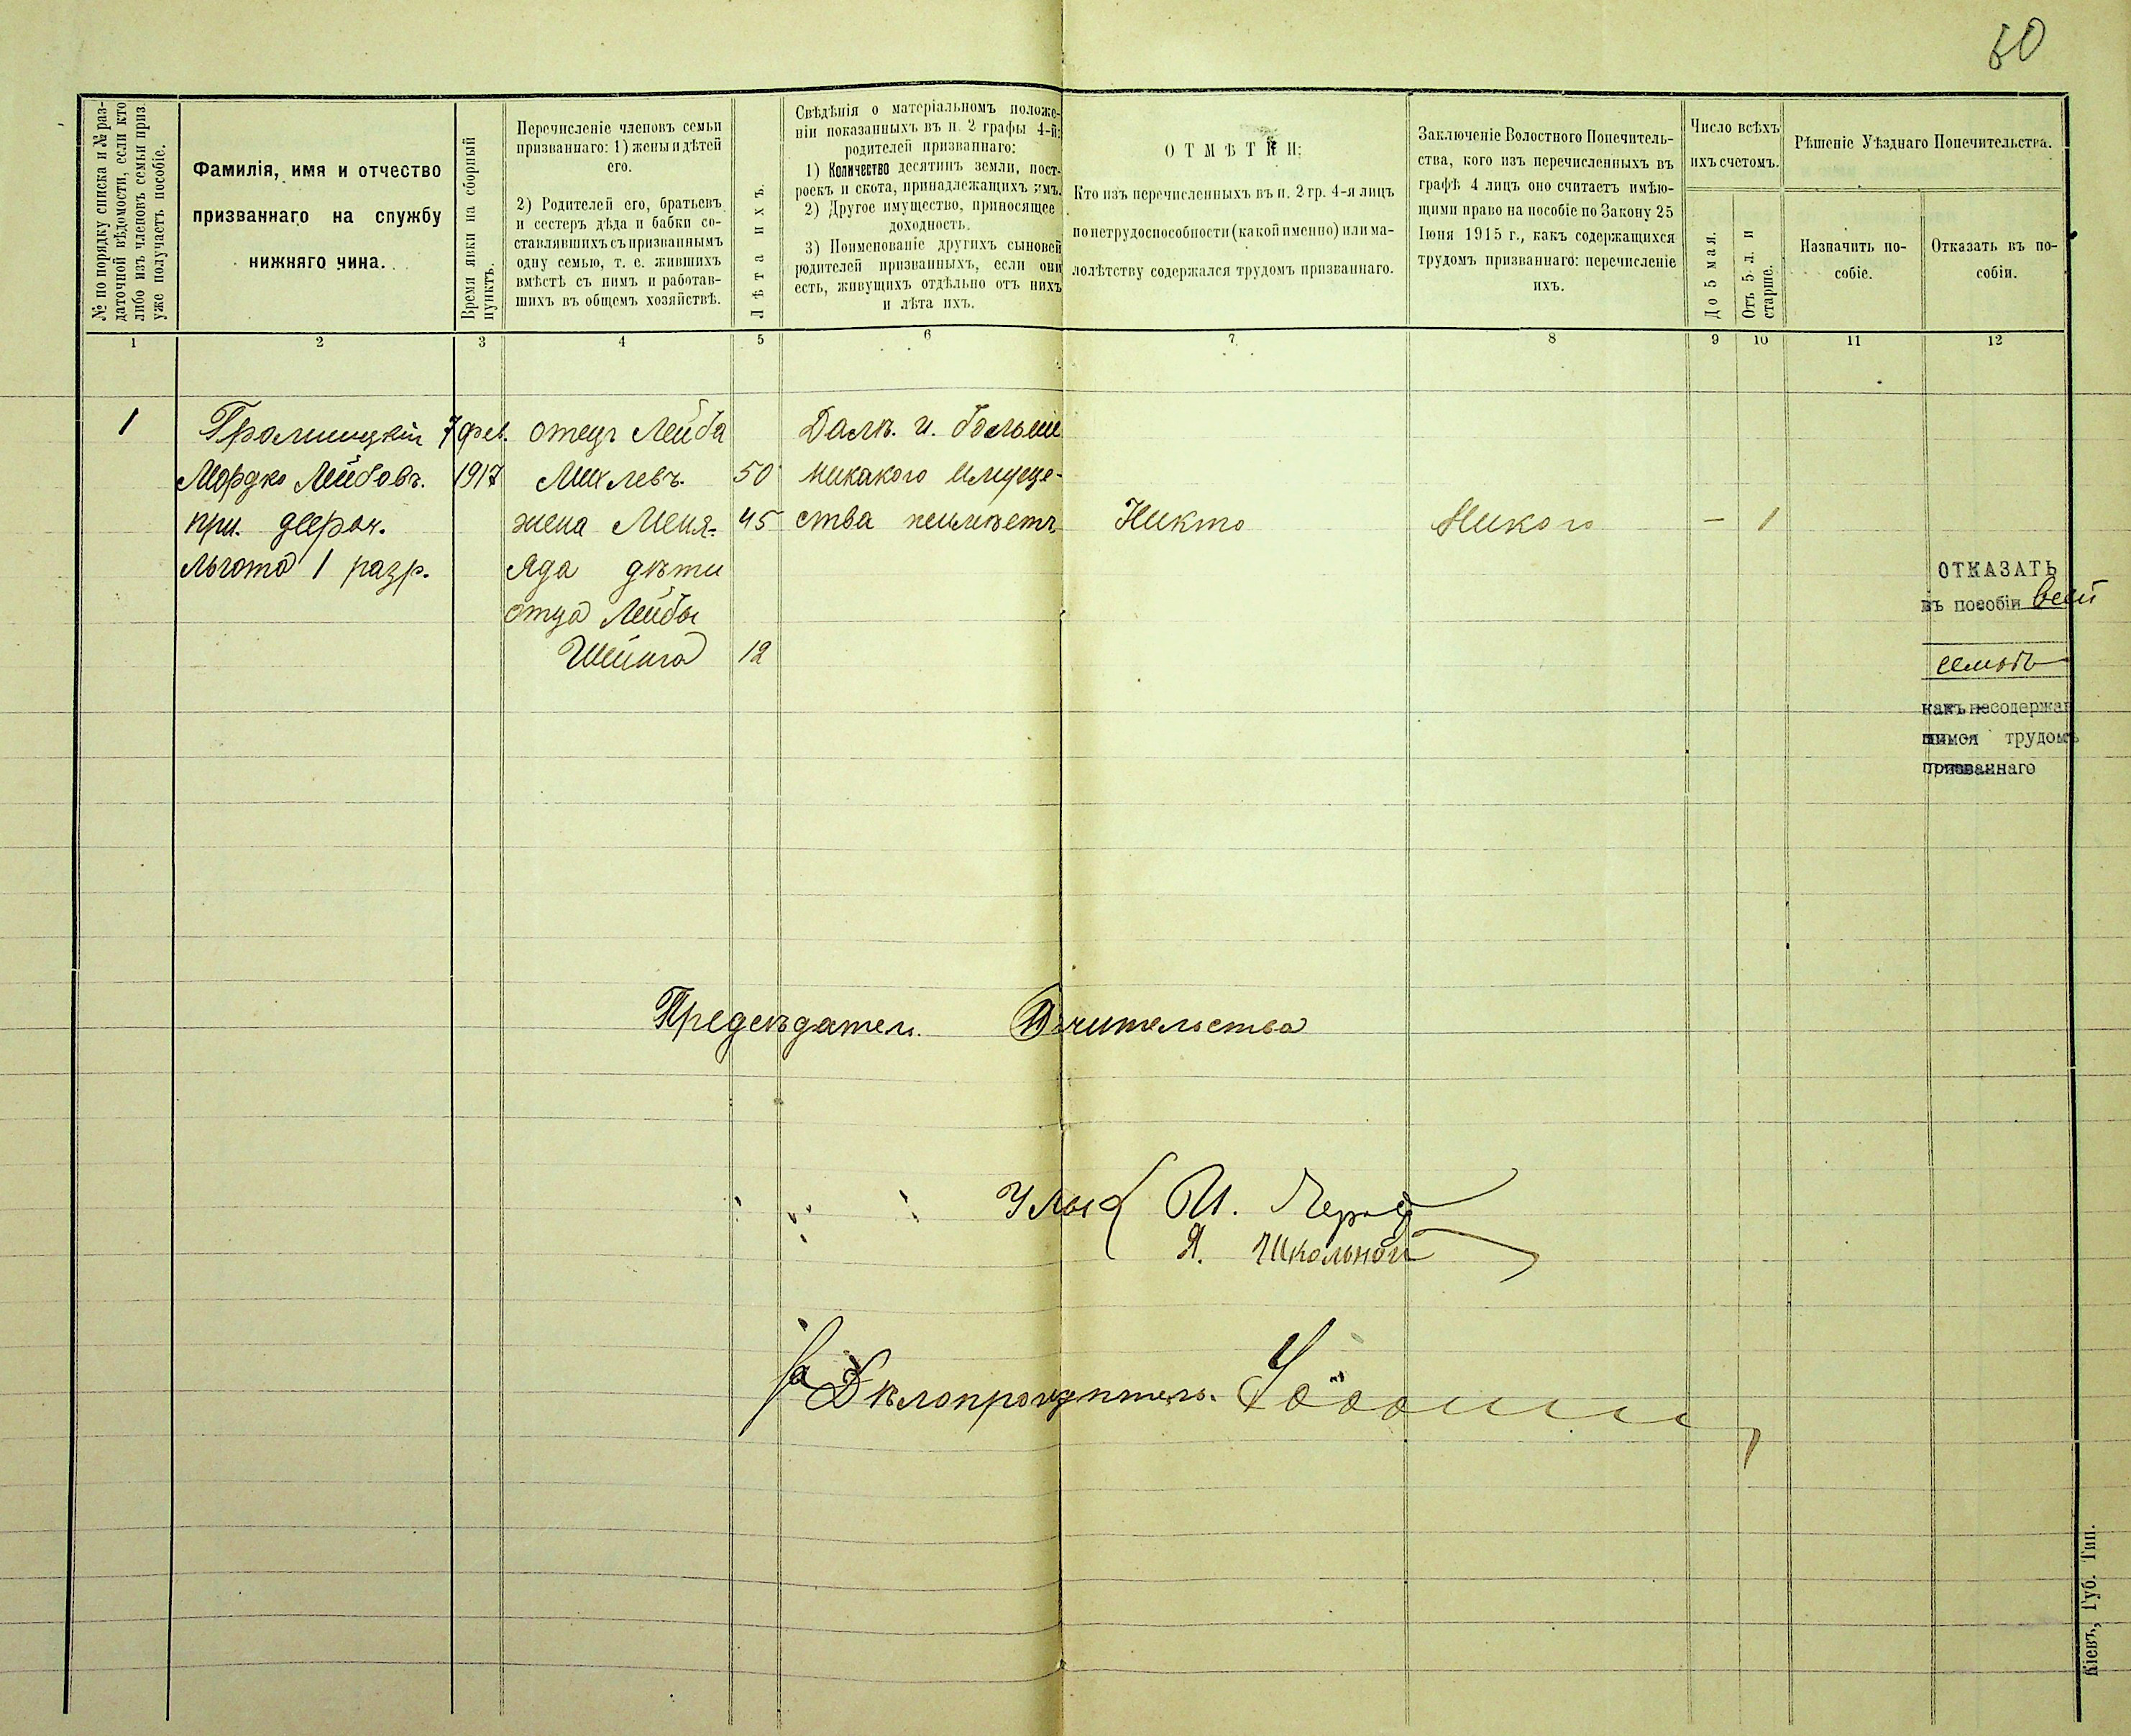 50
№ по порядку списка и № раз-
даточной вѣдомости, если кто
либо изъ членовъ семьи приз.
уже получаетъ пособіе.
Фамилія, имя и отчество
призваннаго на службу
нижняго чина.
Время явки на сборный
пунктъ.
Перечисленіе членовъ семьи
призваннаго: 1) жены и дѣтей
его.
2) Родителей его, братьевъ
и сестеръ дѣда и бабки со-
ставлявшихъ съ призваннымъ
одну семью, т. е. жившихъ
вмѣстѣ съ нимъ и работав-
шихъ въ общемъ хозяйствѣ.
Лѣта ихъ.
Свѣдѣнія о матеріальномъ положе-
ніи показанныхъ въ п. 2 графы 4-й:
родителей призваннаго:
1) Количество десятинъ земли, пост-
роекъ и скота, принадлежащихъ имъ.
2) Другое имущество, приносящее
доходность.
3) Поименованіе другихъ сыновей
родителей призванныхъ, если они
есть, живущихъ отдѣльно отъ нихъ
и лѣта ихъ.
ОТМѢТКИ:
Кто изъ перечисленныхъ въ п. 2 гр. 4-я лицъ
по нетрудоспособности (какой именно) или ма-
лолѣтству содержался трудомъ призваннаго.
Заключеніе Волостного Попечитель-
ства, кого изъ перечисленныхъ въ
графѣ 4 лицъ оно считаетъ имѣю-
щими право на пособіе по Закону 25
Іюня 1915 г., какъ содержащихся
трудомъ призваннаго: перечисленіе
ихъ.
Число всѣхъ
ихъ счетомъ.
До 5 мая.
Отъ 5 л. и
старше.
Рѣшеніе Уѣзднаго Попечительства.
Назначить по-
собіе.
Отказать въ по-
собіи.
1 2 3 4 5 6 7 8 9 10 11 12
1 7 фев. отецъ Лейба Далѣ. и. больше
Мордко Лейбовъ. 1917 Михлевъ. 50 никакого имуще-
при. жена Меня- 45 ства неимѣетъ Никто Никого — 1
льгота 1 разр. Яда дѣти
отца Лейбы
Шейна 12
ОТКАЗАТЬ
въ пособіи всей
семьѣ
какъ несодержав
шимся трудомъ
призваннаго
Предсѣдатель.
И.
Я. Школьной
Дѣлопроизводитель.
Кіевъ, Губ. Тип.